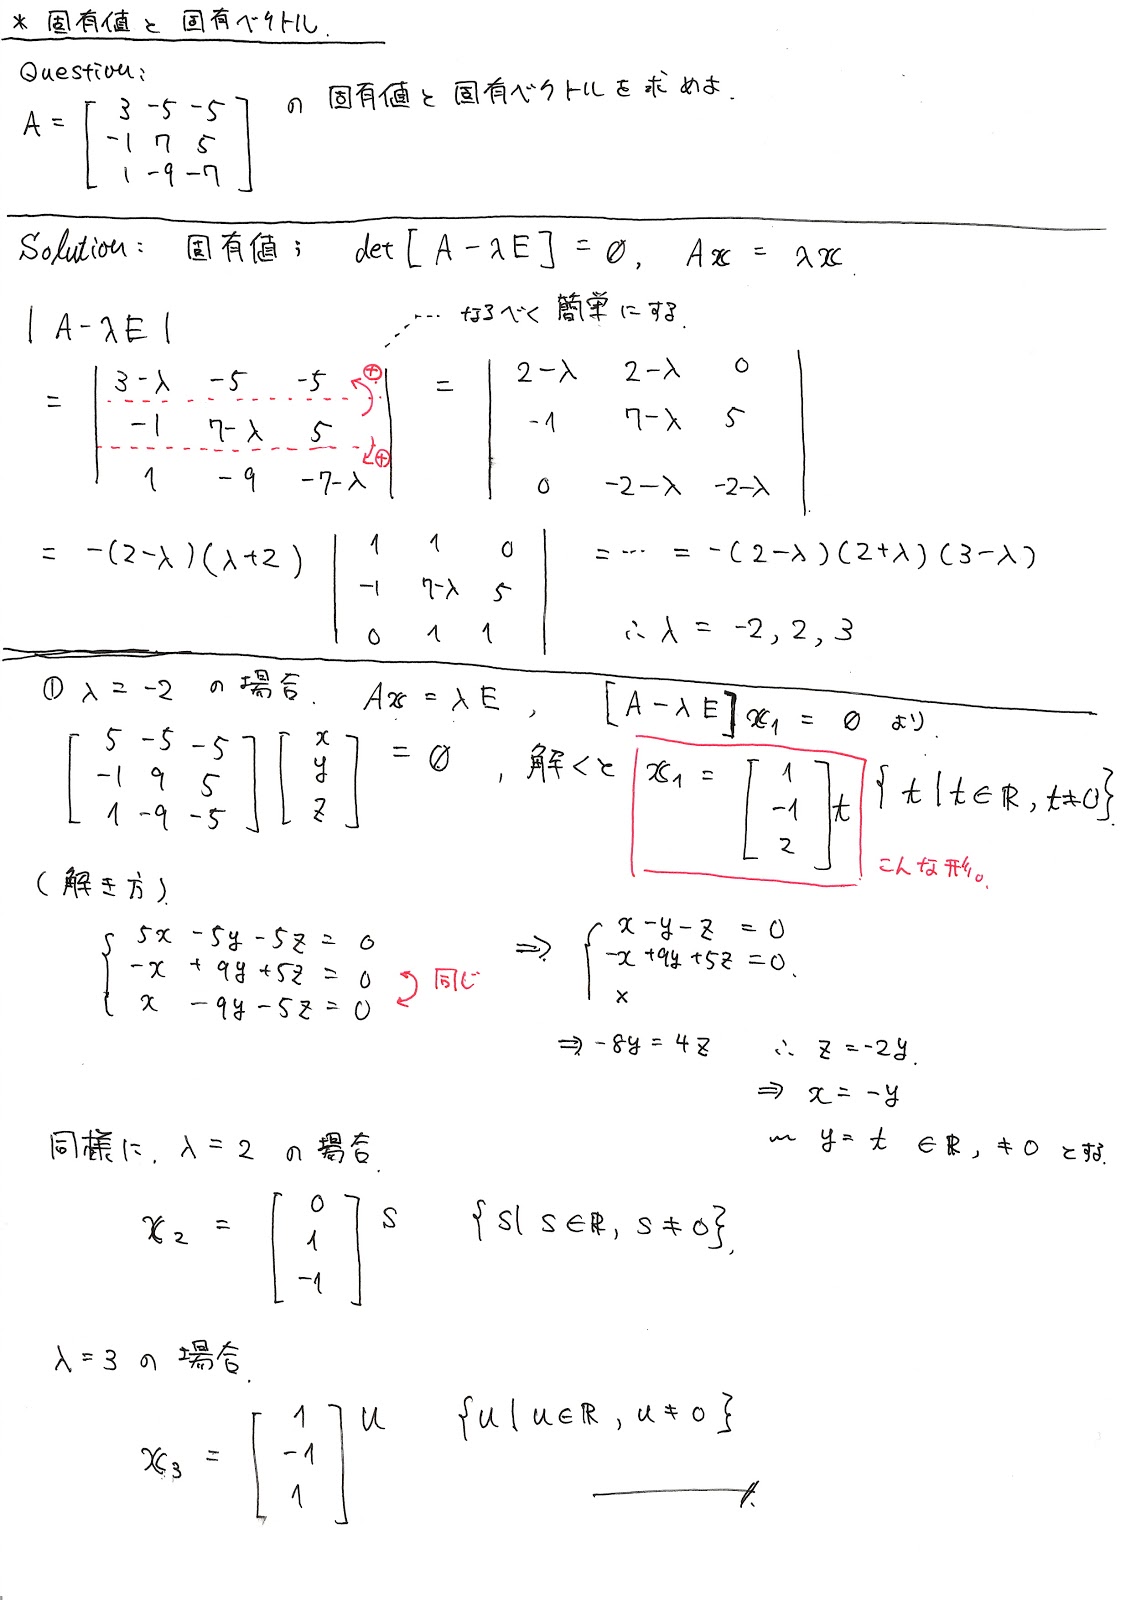 * 固有値と固有ベクトル.
Question:
A = [ 3 -5 -5 ; -1 7 5 ; 1 -9 -7 ] の固有値と固有ベクトルを求めよ.
Solution: 固有値; det[A-λE] = 0, Ax = λx.
|A-λE| … なるべく簡単にする.
= | 3-λ -5 -5 ; -1 7-λ 5 ; 1 -9 -7-λ | ⊕ ⊕ = | 2-λ 2-λ 0 ; -1 7-λ 5 ; 0 -2-λ -2-λ |
= -(2-λ)(λ+2) | 1 1 0 ; -1 7-λ 5 ; 0 1 1 | = … = -(2-λ)(2+λ)(3-λ)
∴ λ = -2, 2, 3
① λ = -2 の場合. Ax = λE, [A-λE]x₁ = 0 より.
[ 5 -5 -5 ; -1 9 5 ; 1 -9 -5 ] [ x ; y ; z ] = 0, 解くと x₁ = [ 1 ; -1 ; 2 ] t {t | t∈ℝ, t≠0}.
こんな形。
(解き方)
{ 5x -5y -5z = 0 ⇒ { x -y -z = 0
-x +9y +5z = 0 -x +9y +5z = 0.
x -9y -5z = 0 同じ ×
⇒ -8y = 4z ∴ z = -2y.
⇒ x = -y
〜 y = t ∈ℝ, ≠0 とする.
同様に, λ = 2 の場合.
x₂ = [ 0 ; 1 ; -1 ] s {s | s∈ℝ, s≠0}.
λ = 3 の場合.
x₃ = [ 1 ; -1 ; 1 ] u {u | u∈ℝ, u≠0}